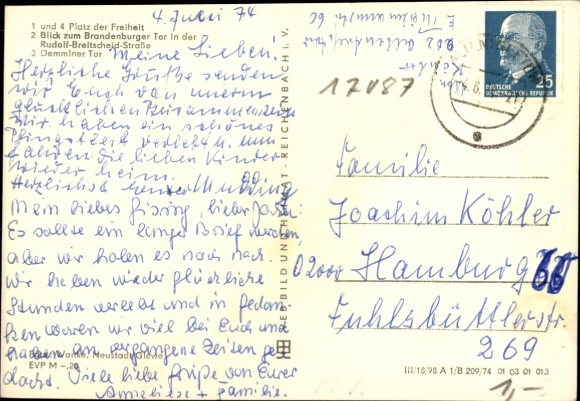 1 und 4 Platz der Freiheit
2 Blick zum Brandenburger Tor in der
Rudolf-Breitscheid-Straße
3 Demminer Tor
4. Juni 74
Meine Lieben!
Herzliche Grüße senden
wir Euch von unserm
glücklichen Zusammensein
Wir haben ein schönes
Pfingstfest verlebt u. nun
fahren die lieben Kinder
wieder heim.
Herzlichst Eure Mutti
Mein liebes, lieber
Es sollte ein langer Brief werden,
aber wir holen es noch nach.
Wir haben wieder glückliche
Stunden verlebt und in Gedan-
ken waren wir viel bei Euch und
haben an vergangene Zeiten ge-
dacht. Viele liebe Grüße von Eurer
Anneliese + Familie.
Neustadt
EVP M –,20
VEB BILD UND HEIMAT · REICHENBACH I. V.
Köhler
202
60
DEUTSCHE
DEMOKRATISCHE REPUBLIK
25
17087
Familie
Joachim Köhler
02000 Hamburg 66
Fuhlsbüttlerstr.
269
III/18/98 A 1/B 209/74 01 03 01 013
1,-